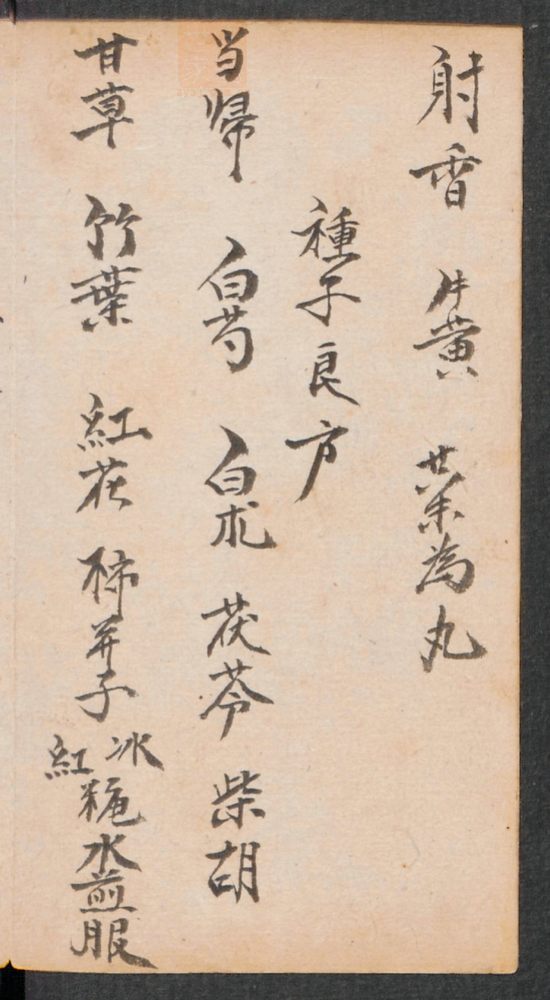 射香 牛黄 共末為丸
種子良方
当帰 白芍 白朮 茯苓 柴胡
甘草 竹葉 紅花 柿并子 冰紅糖水煎服